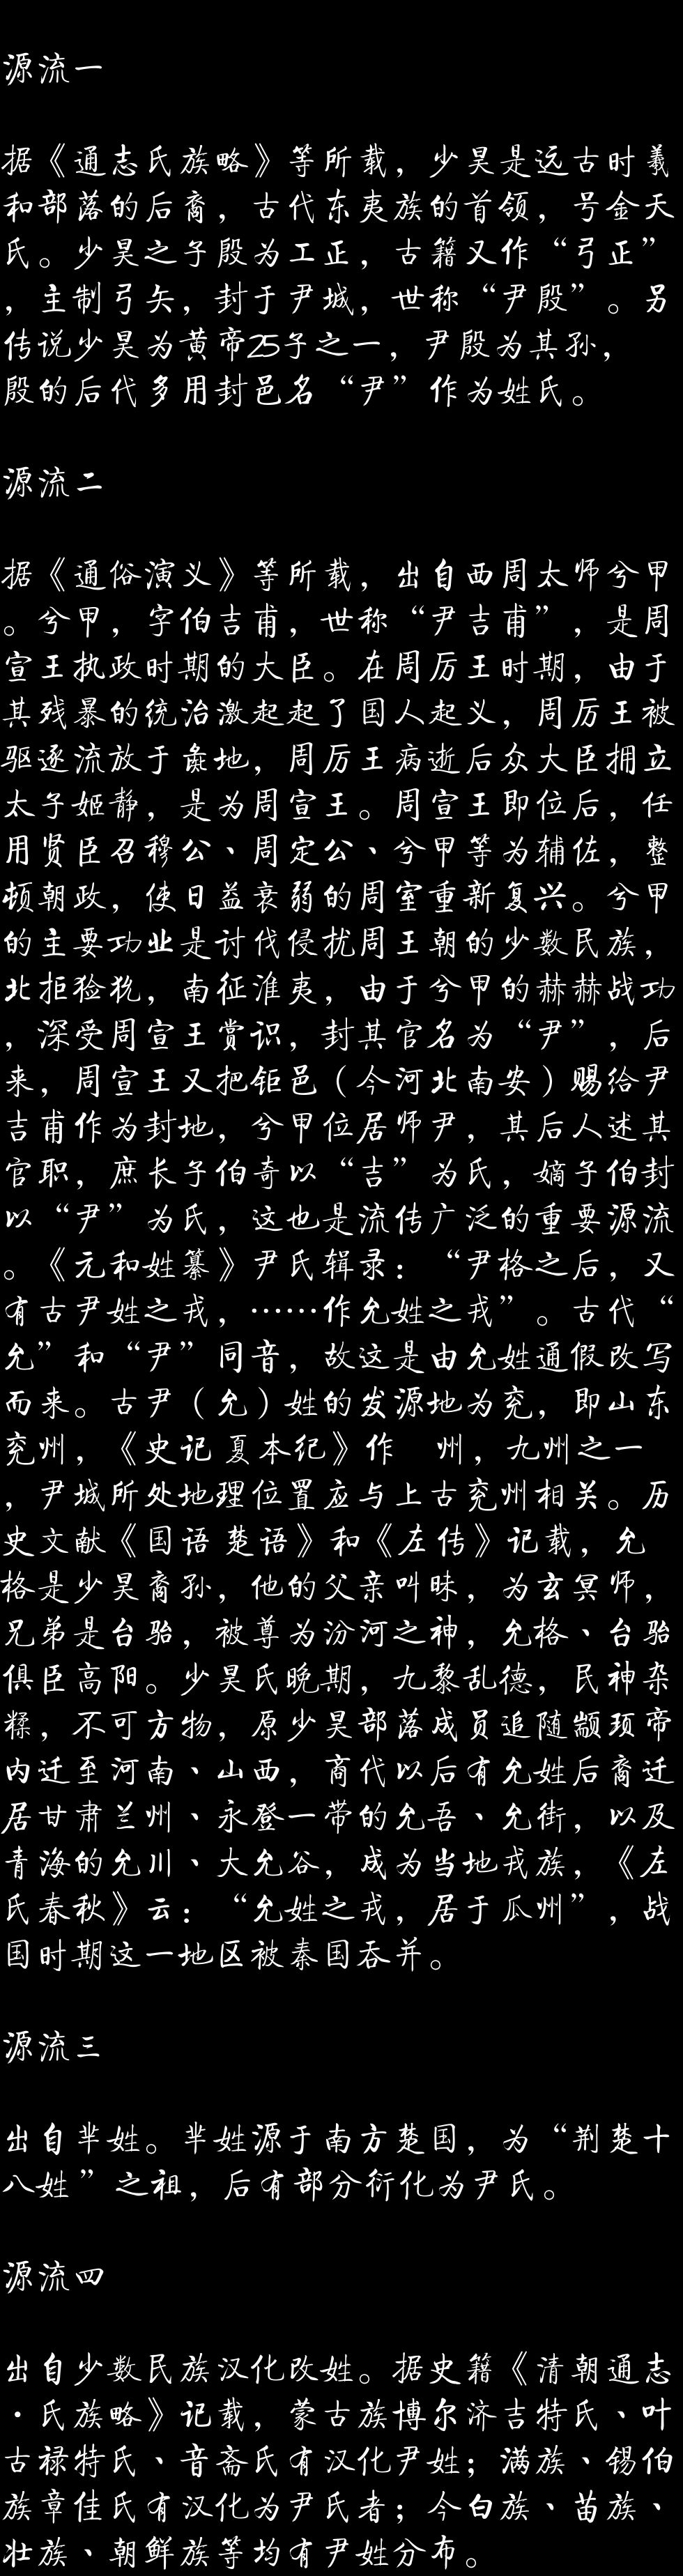 源流一
据《通志氏族略》等所载，少昊是远古时羲
和部落的后裔，古代东夷族的首领，号金天
氏。少昊之子殷为工正，古籍又作“弓正”
，主制弓矢，封于尹城，世称“尹殷”。另
传说少昊为黄帝25子之一，尹殷为其孙，
殷的后代多用封邑名“尹”作为姓氏。
源流二
据《通俗演义》等所载，出自西周太师兮甲
。兮甲，字伯吉甫，世称“尹吉甫”，是周
宣王执政时期的大臣。在周厉王时期，由于
其残暴的统治激起起了国人起义，周厉王被
驱逐流放于彘地，周厉王病逝后众大臣拥立
太子姬静，是为周宣王。周宣王即位后，任
用贤臣召穆公、周定公、兮甲等为辅佐，整
顿朝政，使日益衰弱的周室重新复兴。兮甲
的主要功业是讨伐侵扰周王朝的少数民族，
北拒猃狁，南征淮夷，由于兮甲的赫赫战功
，深受周宣王赏识，封其官名为“尹”，后
来，周宣王又把钜邑（今河北南安）赐给尹
吉甫作为封地，兮甲位居师尹，其后人述其
官职，庶长子伯奇以“吉”为氏，嫡子伯封
以“尹”为氏，这也是流传广泛的重要源流
。《元和姓纂》尹氏辑录：“尹格之后，又
有古尹姓之戎，……作允姓之戎”。古代“
允”和“尹”同音，故这是由允姓通假改写
而来。古尹（允）姓的发源地为兖，即山东
兖州，《史记 夏本纪》作 州，九州之一
，尹城所处地理位置应与上古兖州相关。历
史文献《国语 楚语》和《左传》记载，允
格是少昊裔孙，他的父亲叫昧，为玄冥师，
兄弟是台骀，被尊为汾河之神，允格、台骀
俱臣高阳。少昊氏晚期，九黎乱德，民神杂
糅，不可方物，原少昊部落成员追随颛顼帝
内迁至河南、山西，商代以后有允姓后裔迁
居甘肃兰州、永登一带的允吾、允街，以及
青海的允川、大允谷，成为当地戎族，《左
氏春秋》云：“允姓之戎，居于瓜州”，战
国时期这一地区被秦国吞并。
源流三
出自芈姓。芈姓源于南方楚国，为“荆楚十
八姓”之祖，后有部分衍化为尹氏。
源流四
出自少数民族汉化改姓。据史籍《清朝通志
·氏族略》记载，蒙古族博尔济吉特氏、叶
古禄特氏、音斋氏有汉化尹姓；满族、锡伯
族章佳氏有汉化为尹氏者；今白族、苗族、
壮族、朝鲜族等均有尹姓分布。